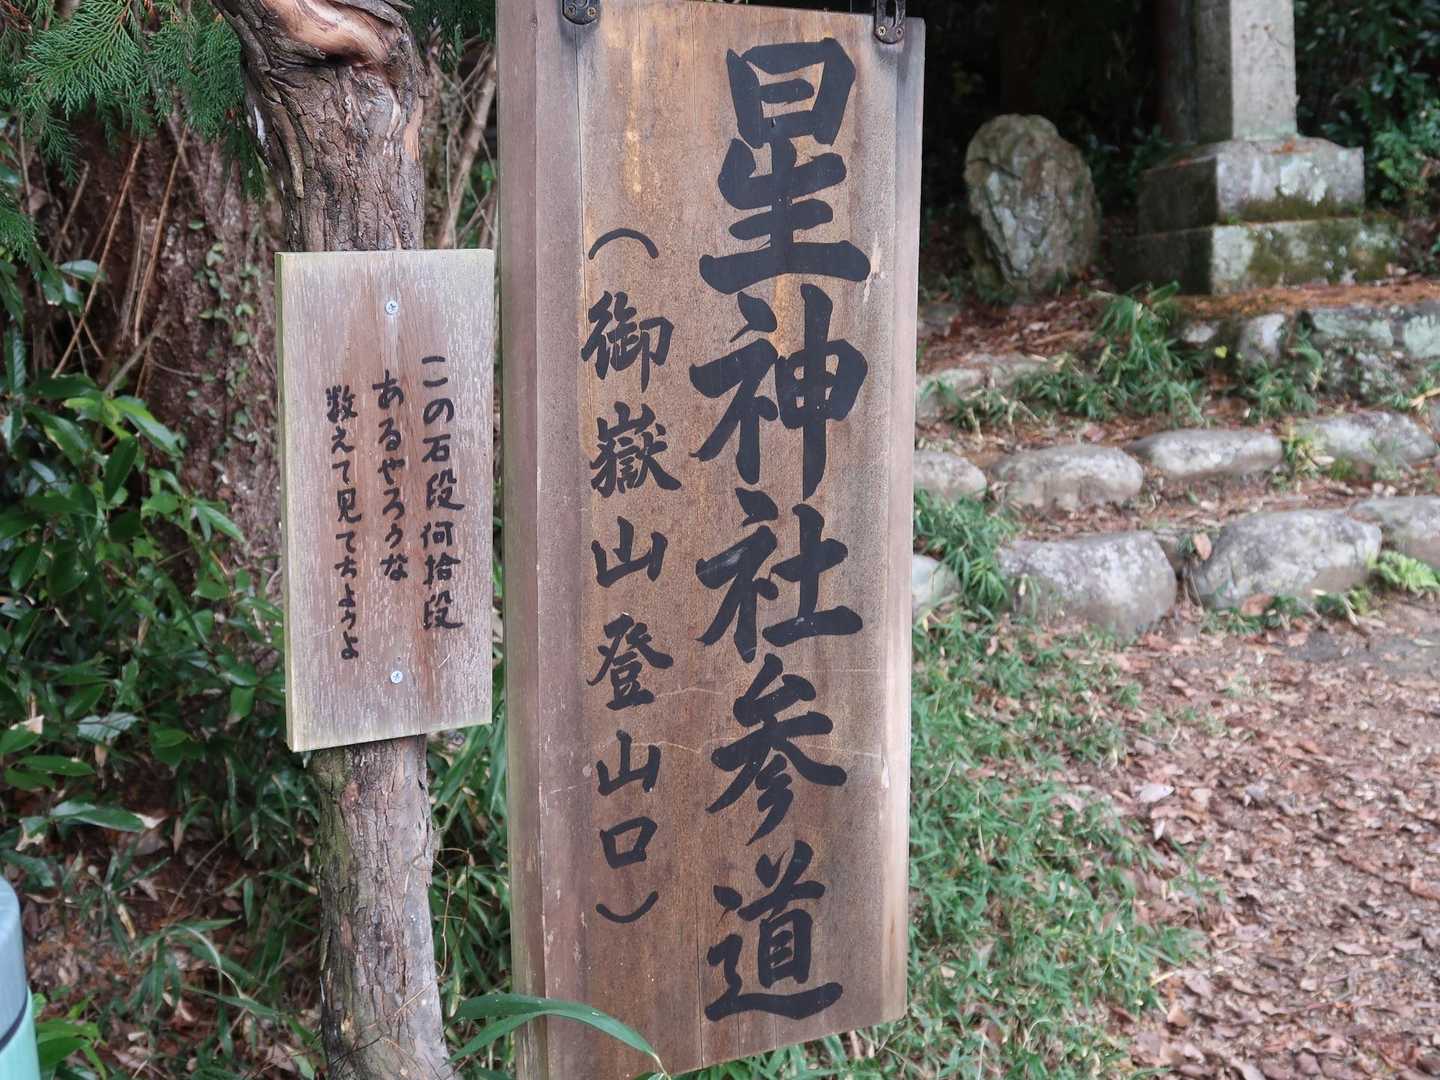 星神社参道
(御嶽山登山口)
この石段何拾段
あるやろうな
数えて見てちょうよ